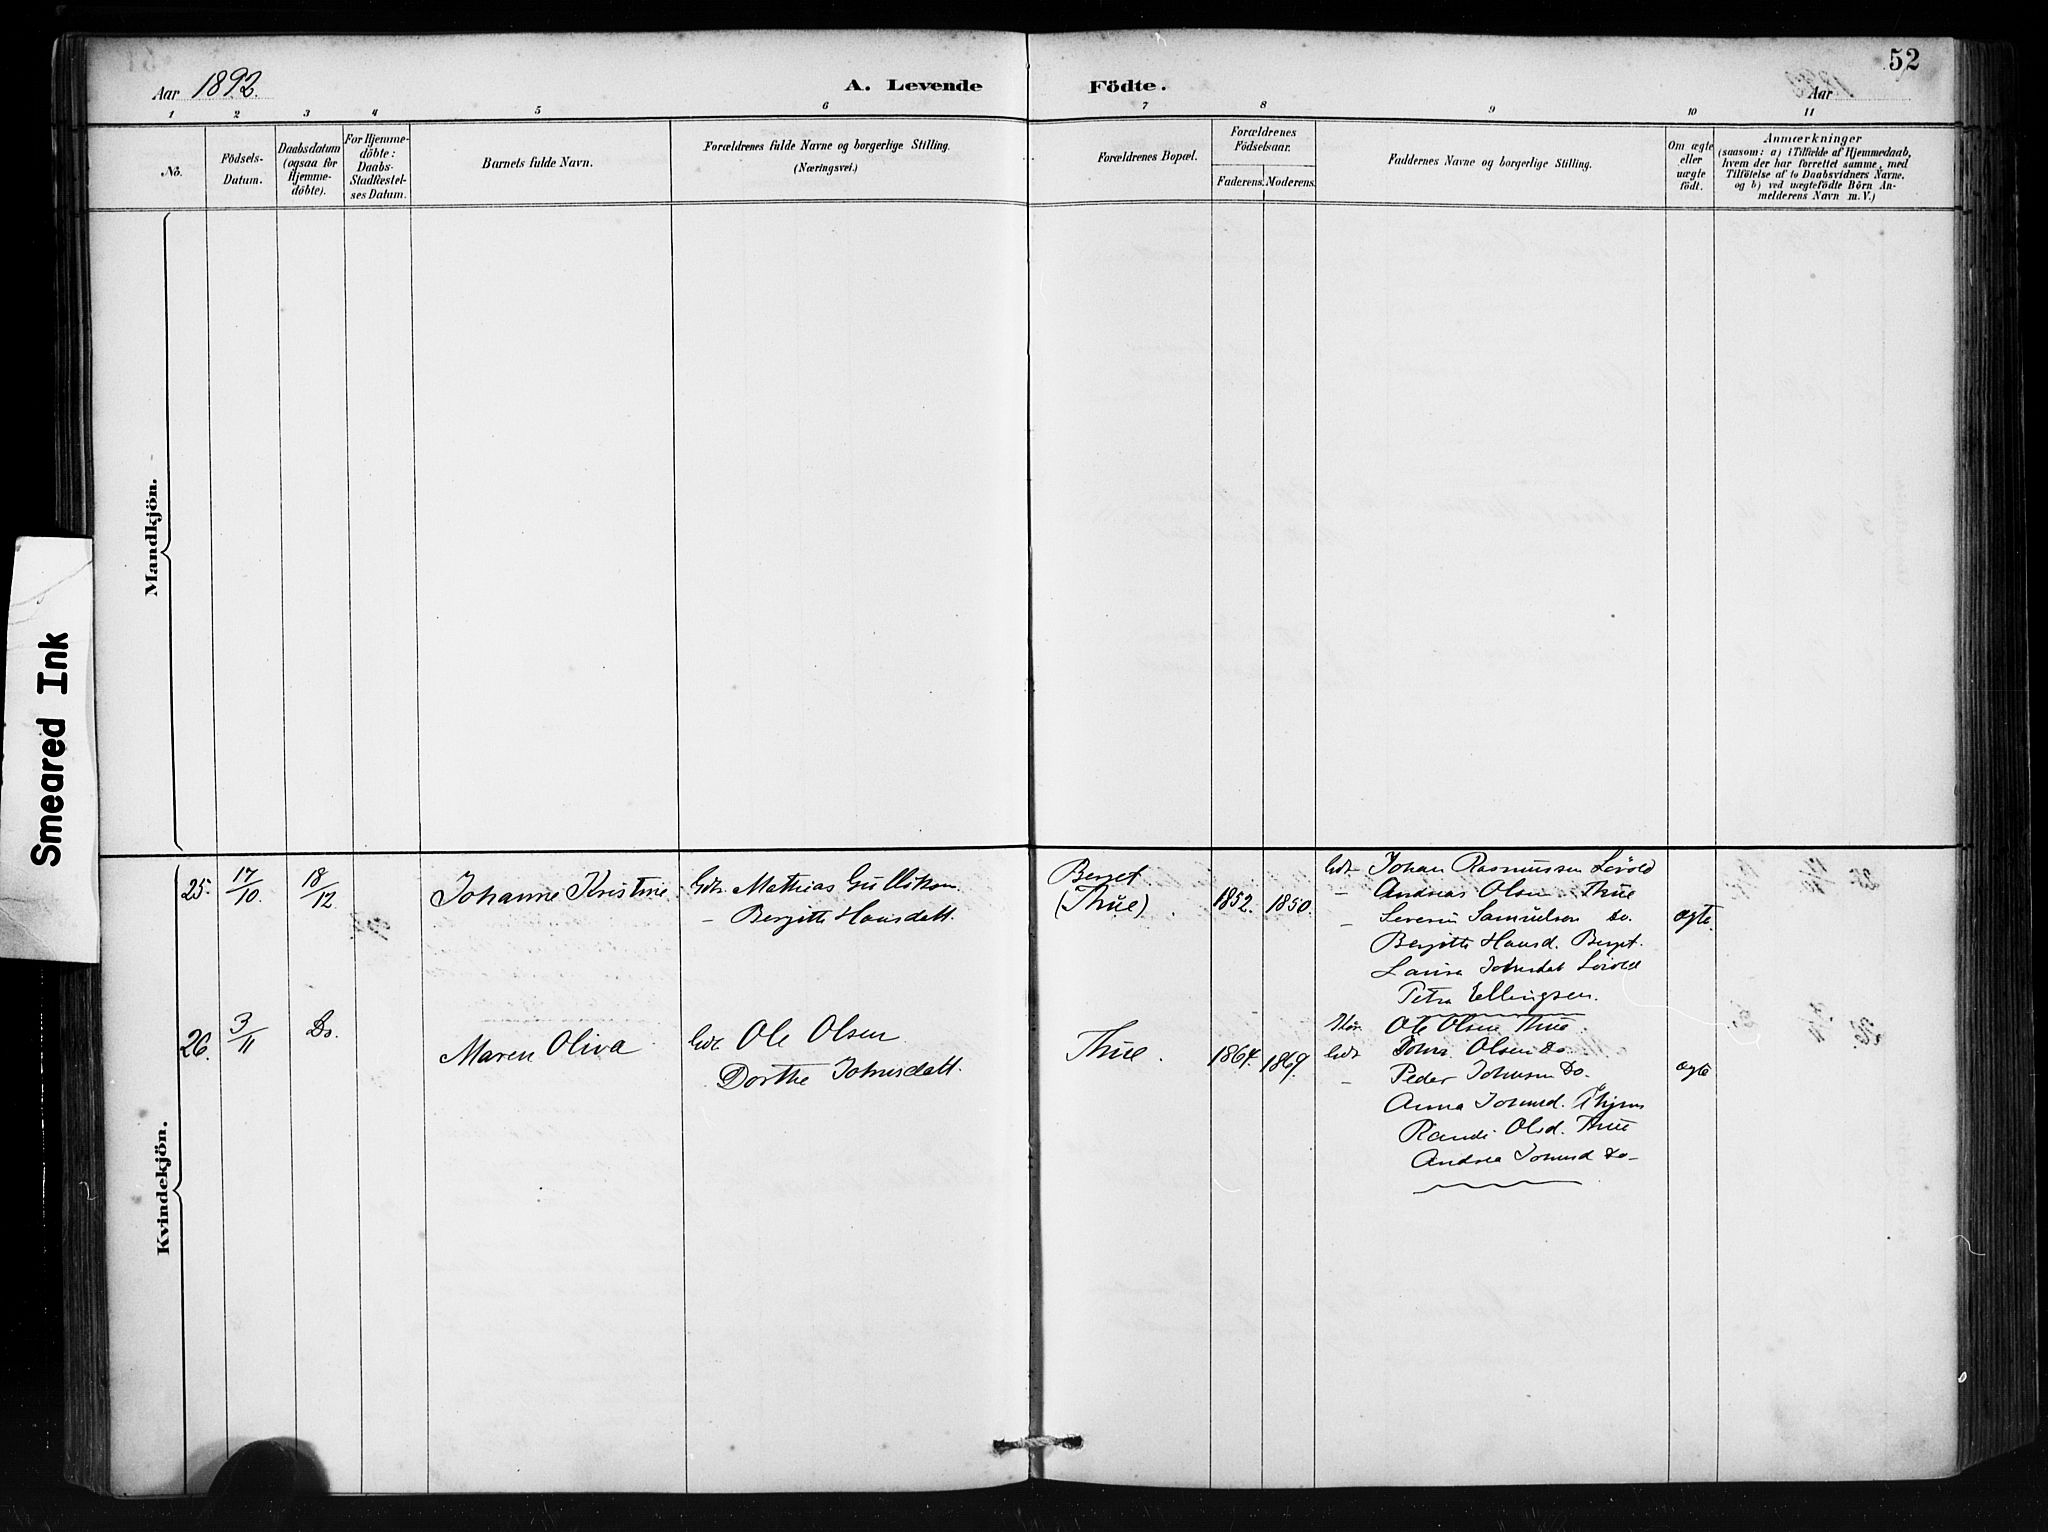 52
Aar 1892.
A. Levende Födte.
Aar
1 2 3 4 5 6 7 8 9 10 11
No.
Födsels-Datum.
Daabsdatum (ogsaa for Hjemmedöbte).
For Hjemmedöbte: Daabs-Stadfæstelses Datum.
Barnets fulde Navn.
Forældrenes fulde Navne og borgerlige Stilling.
(Næringsvei.)
Forældrenes Bopæl.
Forældrenes Födselsaar.
Faderens. Moderens.
Faddernes Navne og borgerlige Stilling.
Om ægte eller uægte födt.
Anmærkninger
(saasom: a) i Tilfælde af Hjemmedaab,
hvem der har forrettet samme, med
Tilföielse af to Daabsvidners Navne.
og b) ved uægtefödte Börn An-
melderens Navn m. V.)
Mandkjön.
Smeared Ink
Kvindekjön.
25. 17/10. 18/12. Johanne Kristine
Gdr. Mathias Gulliksen
– Bergitte Hansdatt.
Berget
(Thue).
1852. 1850.
Gdr. Johan Rasmussen Lövold
– Andreas Olsen Thue
– Severin Samuelsen Do.
Bergitte Hansd. Berget.
Laura Johnsdat Lövold
Petra Ellingsen.
ægte.
26. 3/11 Do. Maren Oliva
Gdr. Ole Olsen
Dorthe Johnsdatt.
Thue.
1864. 1869.
Ole Olsen Thue.
Gdr. Johns. Olsen Do.
– Peder Johnsen Do.
Anna Johnsd.
Randi Olsd. Thue
Andrea Johnsd Do–
ægte